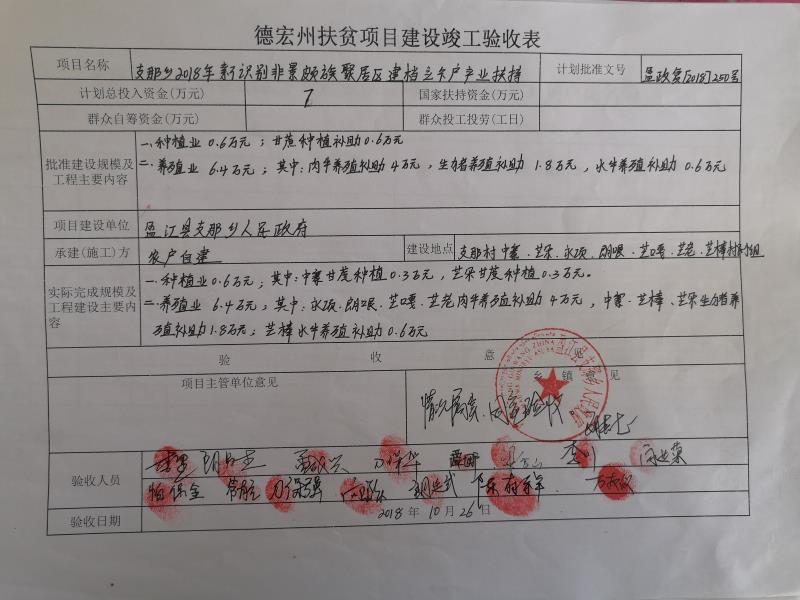 德宏州扶贫项目建设竣工验收表
项目名称 支那乡2018年新识别非景颇族聚居区建档立卡户产业扶持 计划批准文号 盈政复[2018]250号
计划总投入资金(万元) 7 国家扶持资金(万元)
群众自筹资金(万元) 群众投工投劳(工日)
批准建设规模及工程主要内容
一、种植业0.6万元；甘蔗种植补助0.6万元
二、养殖业6.4万元；其中：肉牛养殖补助4万元，生猪养殖补助1.8万元，水牛养殖补助0.6万元
项目建设单位 盈江县支那乡人民政府
承建(施工)方 农户自建 建设地点 支那村中寨、芒东、永项、朗哏、芒嘎、芒老、芒棒
实际完成规模及工程建设主要内容
一、种植业0.6万元；其中：中寨甘蔗种植0.3万元，芒东甘蔗种植0.3万元。
二、养殖业6.4万元，其中：永项、朗哏、芒嘎、芒老肉牛养殖补助4万元，中寨、芒棒、芒东生猪养
殖补助1.8万元；芒棒水牛养殖补助0.6万元
验收意见
项目主管单位意见 乡镇意见
情况属实、同意验收
验收人员
验收日期 2018年10月26日